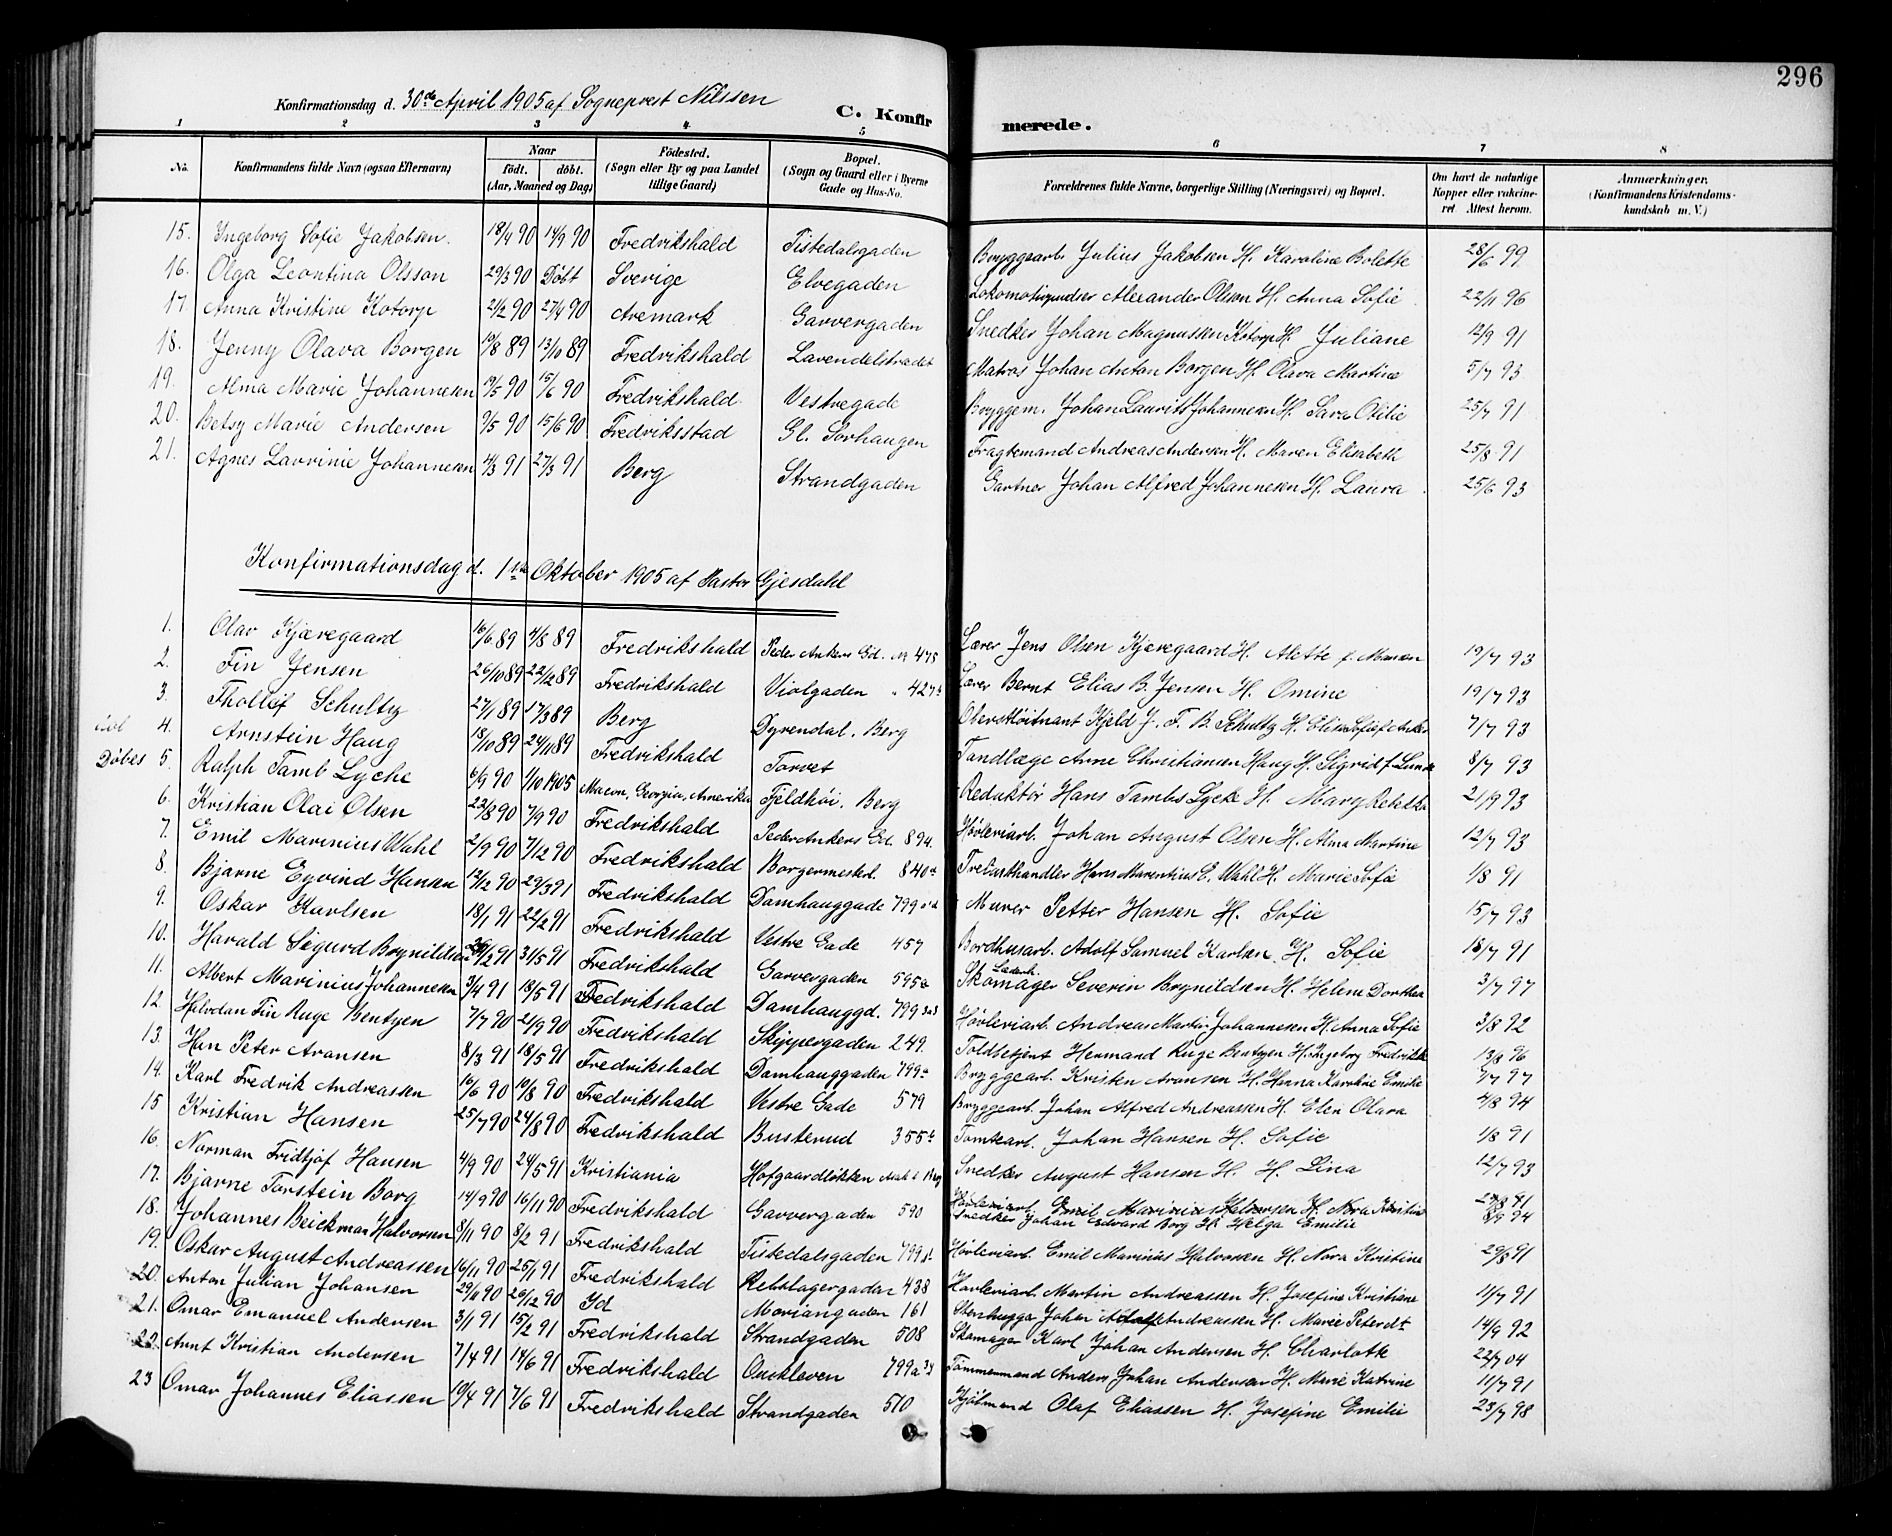 296
Konfirmationsdag d. 30de April 1905 af Sogneprest Nilssen
C. Konfirmerede.
1 2 3 4 5 6 7 8
No. Konfirmandens fulde Navn (ogsaa Efternavn) Naar født. døbt. (Aar, Maaned og Dag) Fødested. (Sogn eller By og paa Landet tillige Gaard) Bopæl. (Sogn og Gaard eller i Byerne Gade og Hus-No. Forældrenes fulde Navne, borgerlige Stilling (Næringsvei) og Bopæl. Om havt de naturlige Kopper eller vakcineret Attest herom. Anmærkninger. (Konfirmandens Kristendomskundskab m. V.)
15. Ingeborg Sofie Jakobsen. 18/4 90 14/9 90 Fredrikshald Tistedalsgaden Bryggearb. Julius Jakobsen H. Karoline Bolette 28/6 99
16. Olga Leontina Olsson 29/3 90 Døbt Sverige Elvegaden Alexander Olsen H. Anna Sofie 22/11 96
17. Anna Kristine Kotorp 21/2 90 27/4 90 Aremark Garvergaden Snedker Johan Magnussen Kotorp H. Juliane 12/9 91
18. Jenny Olava Borgen 19/8 89 13/10 89 Fredrikshald Lavendelstrædet Matros Johan Anton Borgen H. Olava Martine 5/7 93
19. Alma Marie Johannesen 19/5 90 15/6 90 Fredrikshald Vestregade Bryggem. Johan Laurits Johannesen H. Sara Otilie 25/7 91
20. Betsy Marie Andersen 9/5 90 15/6 90 Fredriksstad Gl. Sorhaugen Fragtemand Andreas Andersen H. Maren Elisabeth 25/8 91
21. Agnes Lavrinie Johannesen 4/3 91 27/3 91 Berg Strandgaden Gartner Johan Alfred Johannesen H. Laura 25/6 93
Konfirmationsdag d. 1ste Oktober 1905 af Pastor Gjesdahl
1. Olav Kjæregaard 16/6 89 4/8 89 Fredrikshald Peder Ankers Gd. No 475 Lærer Jens Olsen Kjæregaard H. Alette f. 19/7 93
2. Fin Jensen 26/10 89 22/12 89 Fredrikshald Violgaden " 427b Lærer Bernt Elias B. Jensen H. Omine 19/7 93
3. Tholléf Schultz 27/1 89 17/3 89 Berg Dyrendal. Berg Oberstløitnant Kjeld J. F. B. Schultz H. Elisa Sofie f. Anker 7/7 93
4. Arnstein Haug 18/10 89 24/11 89 Fredrikshald Torvet Tandlæge Arne Christiansen Haug H. Sigrid f. Lunde 8/7 93
Døbes 5. Ralph Tamb Lyche 6/9 90 1/10 1905 Macon, Georgia, Amerika Fjeldhøi. Berg Redaktør Hans Tambs Lyche H. Mary Rebekka 21/9 93
6. Kristian Olai Olsen 23/8 90 7/9 90 Fredrikshald Peder Ankers Gd. 894. Høvleriarb. Johan August Olsen H. Alma Martine 12/7 93
7. Emil Marinius Wahl 2/9 90 7/12 90 Fredrikshald Borgermestel. 840a Hans Marentius E. Wahl H. Marie Sofie 1/8 91
8. Bjarne Eyvind Hansen 12/12 90 29/3 91 Fredrikshald Damhauggade 799 Murer Petter Hansen H. Sofie 15/7 93
9. Oskar Karlsen 18/1 91 22/2 91 Fredrikshald Vestre Gade 457 Bordhusarb. Adolf Samuel Karlsen H. Sofie 18/7 91
10. Harald Sigurd Brynildsen 31/5 91 Fredrikshald Garvergaden 595a Skomager Severin Brynildsen H. Helene Dorthea 3/7 97
11. Albert Marinius Johannesen 3/4 91 18/5 91 Fredrikshald Damhauggd. 799 Høvleriarb. Andreas Martin Johannesen H. Anna Sofie 3/8 92
12. Halvdan Fin Ruge Bentzen 7/7 90 21/9 90 Fredrikshald Skippergaden 249. Toldbetjent Hermand Ruge Bentzen H. Ingeborg Fredrikke 13/8 96
13. Han Peter Aronsen 8/3 91 18/5 91 Fredrikshald Damhauggaden 799a Bryggearb. Kristen Aronsen H. Hanna Karoline Emilie 5/7 97
14. Karl Fredrik Andreassen 16/6 90 10/8 90 Fredrikshald Vestre Gade 579 Bryggearb. Johan Alfred Andreassen H. Elen Olava 4/8 94
15 Kristian Hansen 25/7 90 24/8 90 Fredrikshald Busterud 355b Tomtearb. Johan Hansen H. Sofie 1/8 91
16. Norman Fridtjof Hansen 4/9 90 24/5 91 Kristiania Hofgaardløkken Snedker August Hansen H. H. Lina 12/7 93
17. Bjarne Torstein Borg 14/9 90 16/11 90 Fredrikshald Garvergaden 590 Høvleriarb. Emil Marinius Halvorsen H. Nora Kristine
Snedker Johan Edvard Borg H. Helga Emilie
18. Johannes Beickman Halvorsen 8/11 90 8/2 91 Fredrikshald Tistedalsgaden 799 Høvleriarb. Emil Marinius Halvorsen H. Nora Kristine 29/8 91
19. Oskar August Andreassen 16/11 90 25/1 91 Fredrikshald Rebslagergaden 438 Høvleriarb. Martin Andreassen H. Josefine Kristiane 11/7 91
20. Anton Julian Johansen 29/11 90 26/12 90 Id Moriangaden 161 Stenhugger Johan Adolf Andreassen H. Marie Petersdt 14/9 92
21. Omar Emanuel Andersen 3/1 91 15/2 91 Fredrikshald Strandgaden 508 Skomager Karl Johan Andersen H. Charlotte 22/7 04
22. Arnt Kristian Andersen 7/4 91 14/6 91 Fredrikshald Ouekleven 799a Tømmermand Anders Johan Andersen H. Marie Katrine 11/7 91
23 Omar Johannes Eliassen 19/4 91 7/6 91 Fredrikshald Strandgaden 510 Kjølmand Olaf Eliassen H. Josefine Emilie 23/7 98